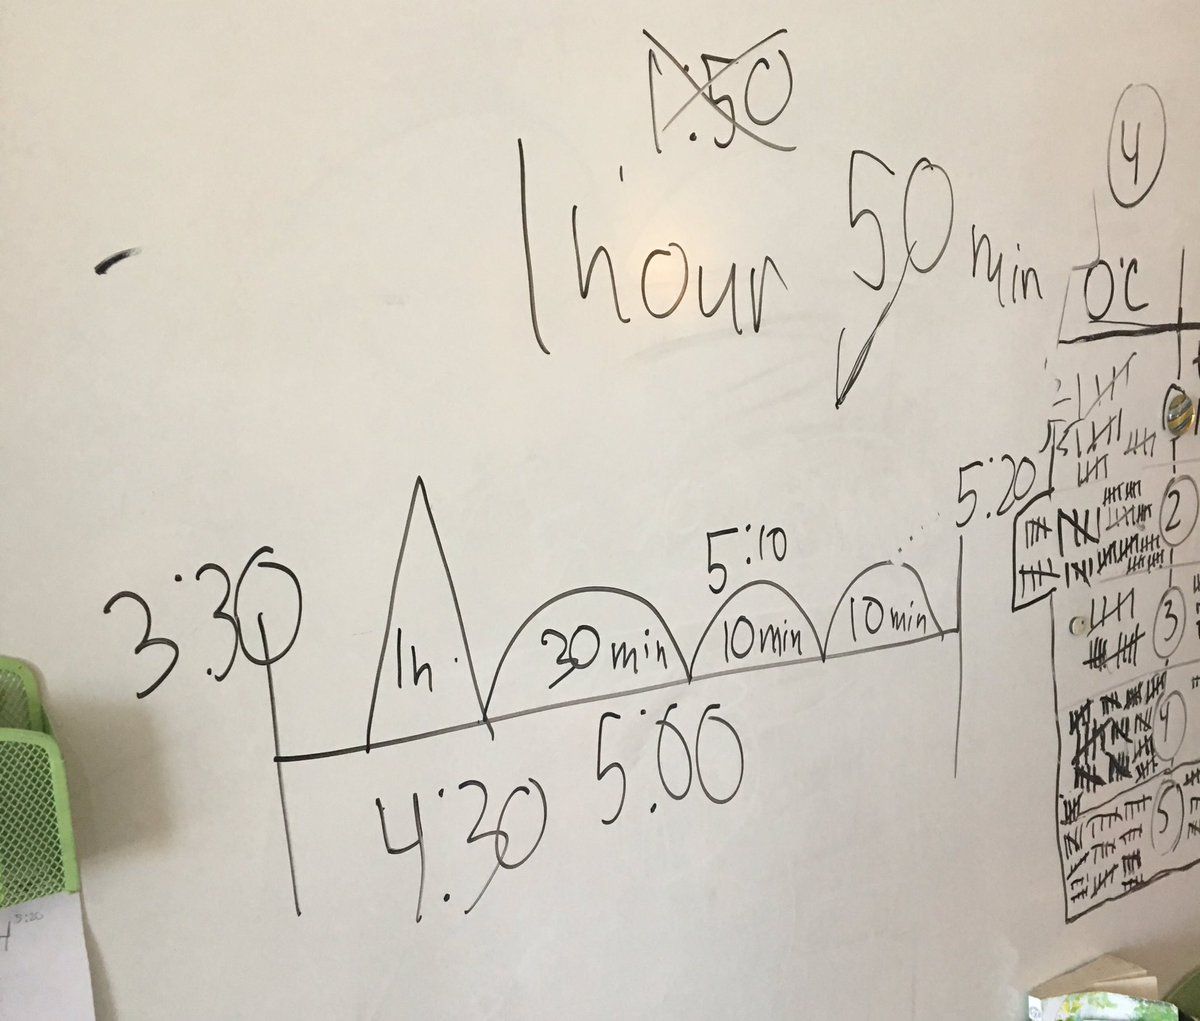 1:50
1 hour 50 min
4
0°C
5:20
5:10
3:30
1h. 30 min 10 min 10 min
4:30 5:00
2
3
4
5
5:20